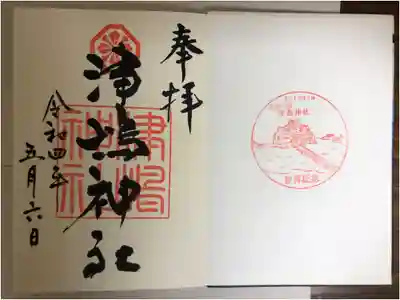 奉拝
津嶋神社
令和四年
五月六日
津嶋
神社